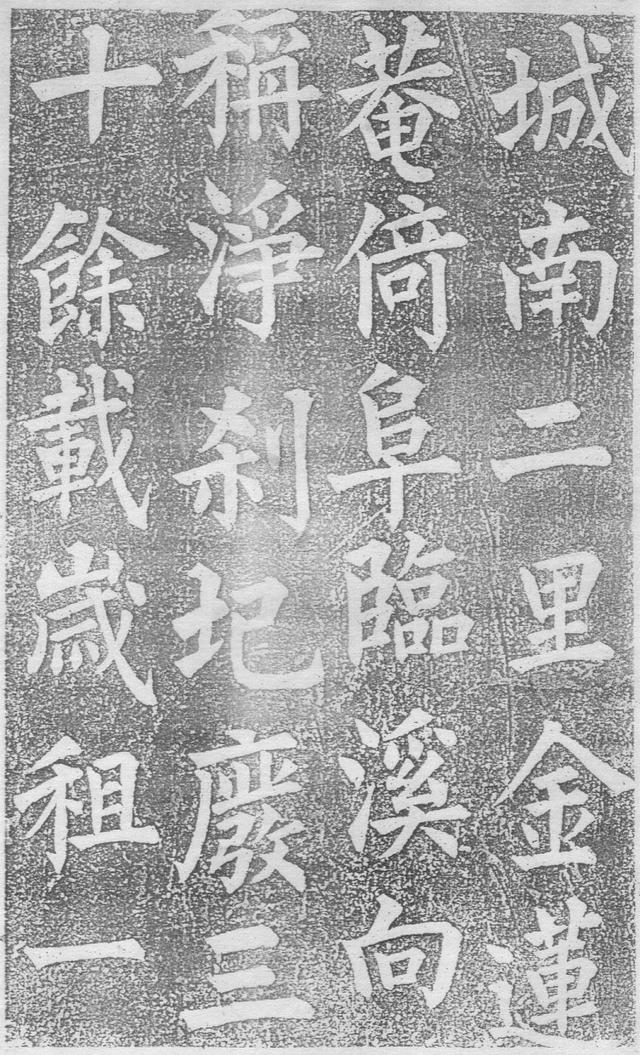 城南二里金蓮
菴倚阜臨溪向
稱淨刹圮廢三
十餘載歲租一